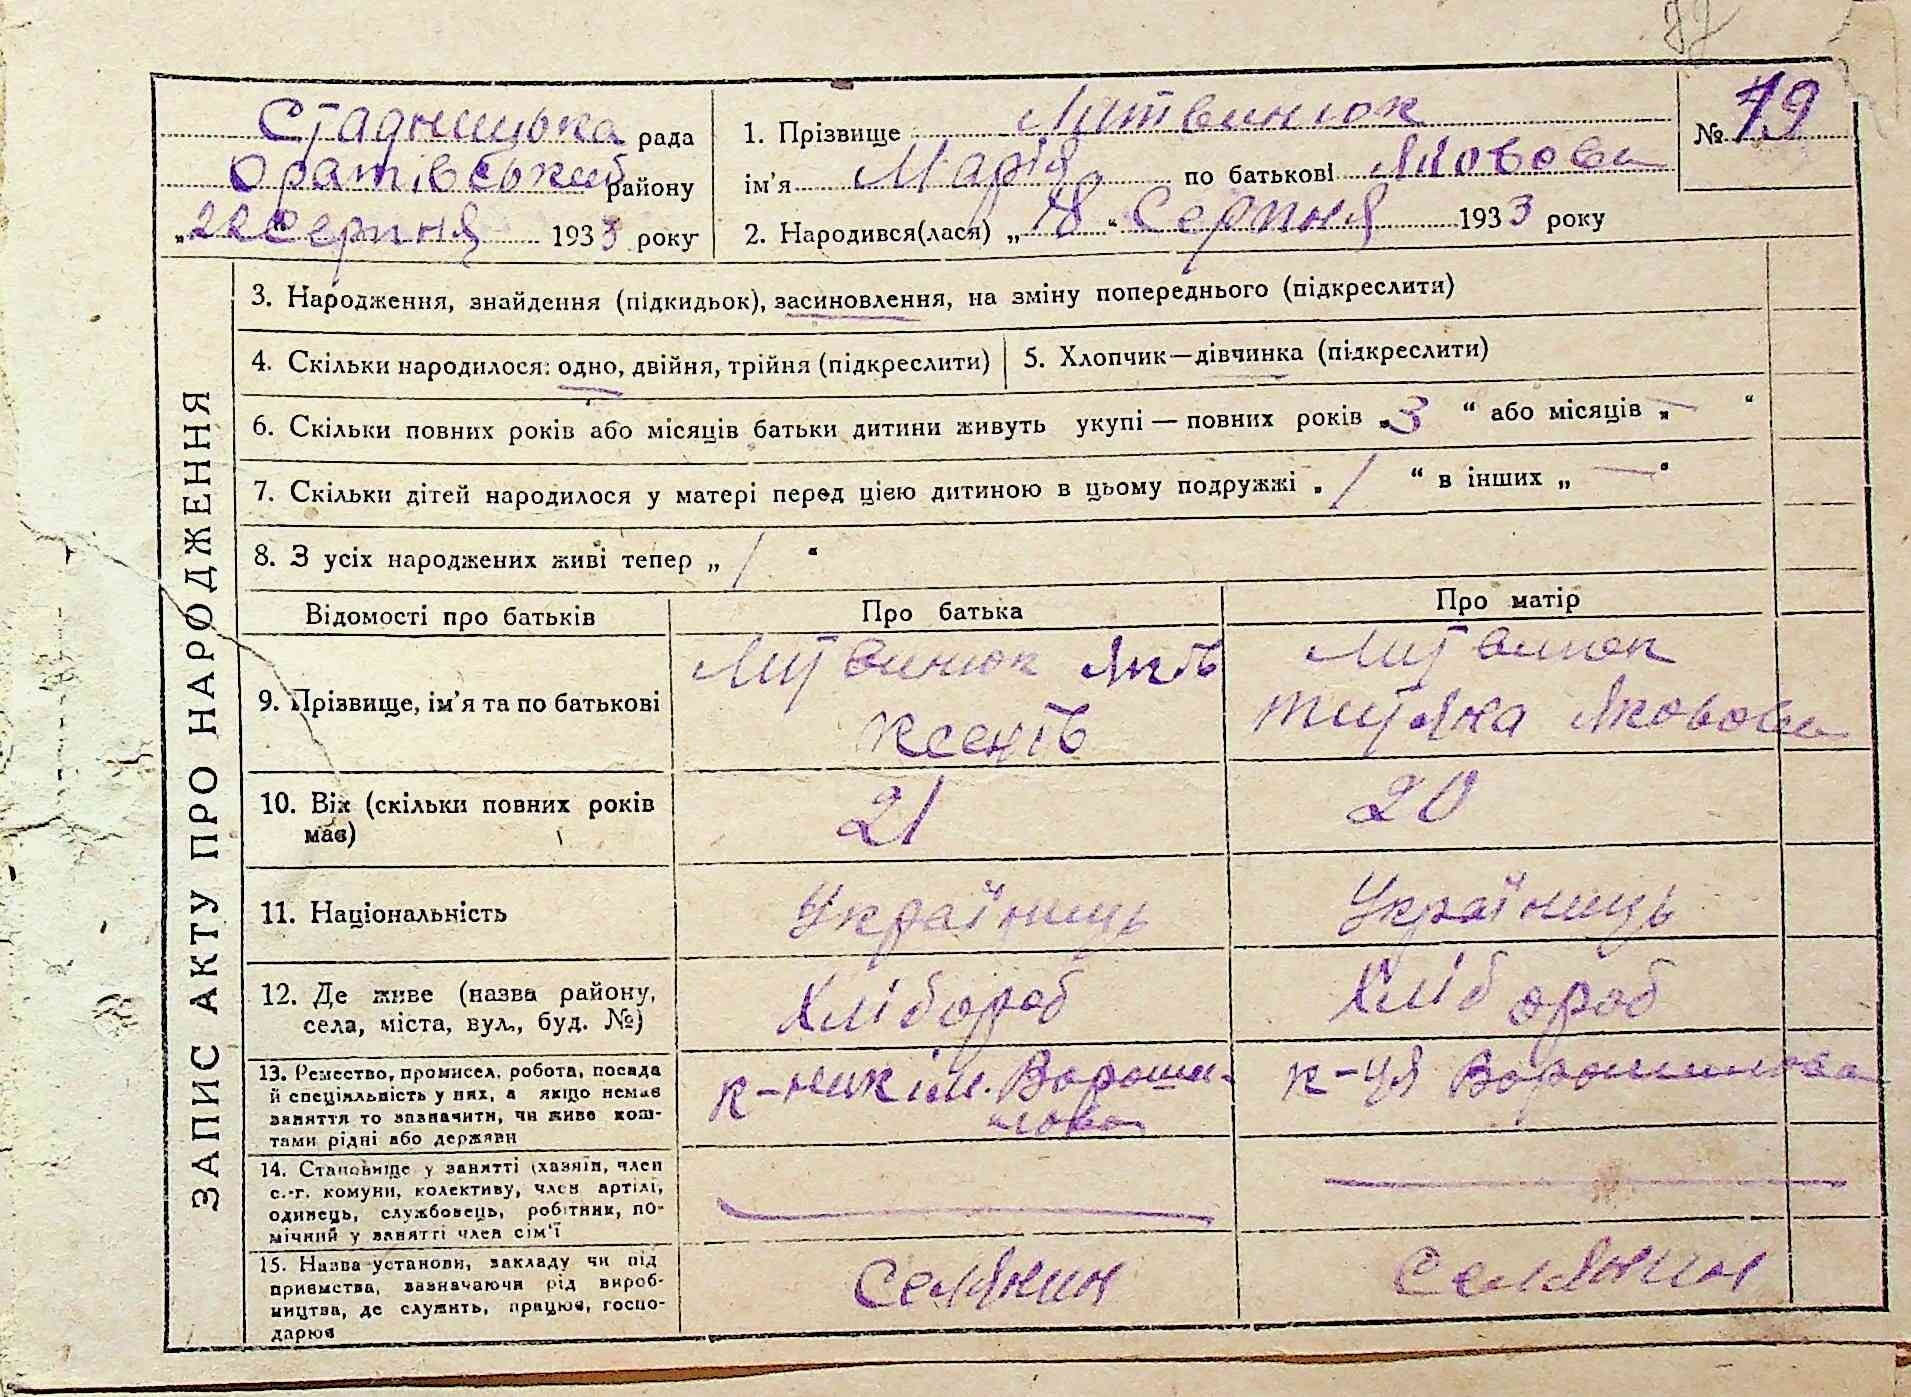 Стадницька рада
Оратівський району
„22“ Серпня 1933 року
1. Прізвище Литвинюк
ім’я Марія по батькові Яковова
2. Народився(лася) „18“ Серпня 1933 року
№ 19
ЗАПИС АКТУ ПРО НАРОДЖЕННЯ
3. Народження, знайдення (підкидьок), засиновлення, на зміну попереднього (підкреслити)
4. Скільки народилося: одно, двійня, трійня (підкреслити)
5. Хлопчик—дівчинка (підкреслити)
6. Скільки повних років або місяців батьки дитини живуть укупі — повних років „3“ або місяців „—“
7. Скільки дітей народилося у матері перед цією дитиною в цьому подружжі „1“ в інших „—“
8. З усіх народжених живі тепер „1“
Відомості про батьків
Про батька
Про матір
9. Прізвище, ім’я та по батькові
Литвинюк Яків
Ксенів
Литвинюк
Титяна Яковова
10. Вік (скільки повних років
має)
21
20
11. Національність
Україниць
Україниць
12. Де живе (назва району,
села, міста, вул., буд. №)
Хлібороб
Хлібороб
13. Ремество, промисел, робота, посада
й спеціяльність у них, а якщо немає
заняття то зазначити, чи живе кош-
тами рідні або держави
к-ник ім. Вороши-
лова
к-ця Ворошилова
14. Становище у занятті (хазяїн, член
с.-г. комуни, колективу, член артілі,
одинець, службовець, робітник, по-
мічний у занятті член сім’ї
15. Назва установи, закладу чи під
приємства, зазначаючи рід вироб-
ництва, де служить, працює, госпо-
дарює
Селянин
Селянин